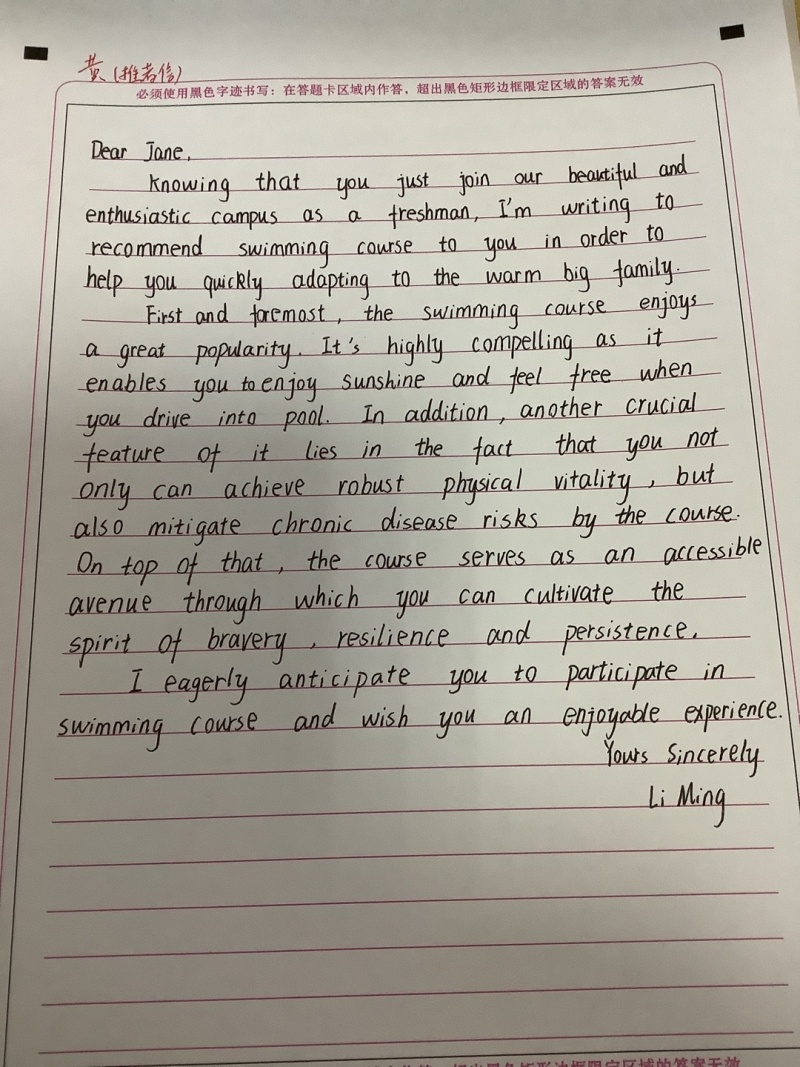 黄(推荐信)
必须使用黑色字迹书写：在答题卡区域内作答，超出黑色矩形边框限定区域的答案无效
Dear Jane,
Knowing that you just join our beautiful and
enthusiastic campus as a freshman, I'm writing to
recommend swimming course to you in order to
help you quickly adapting to the warm big family.
First and foremost, the swimming course enjoys
a great popularity. It's highly compelling as it
enables you to enjoy sunshine and feel free when
you drive into pool. In addition, another crucial
feature of it lies in the fact that you not
only can achieve robust physical vitality, but
also mitigate chronic disease risks by the course.
On top of that, the course serves as an accessible
avenue through which you can cultivate the
spirit of bravery, resilience and persistence.
I eagerly anticipate you to participate in
swimming course and wish you an enjoyable experience.
Yours Sincerely
Li Ming
超出黑色矩形边框限定区域的答案无效